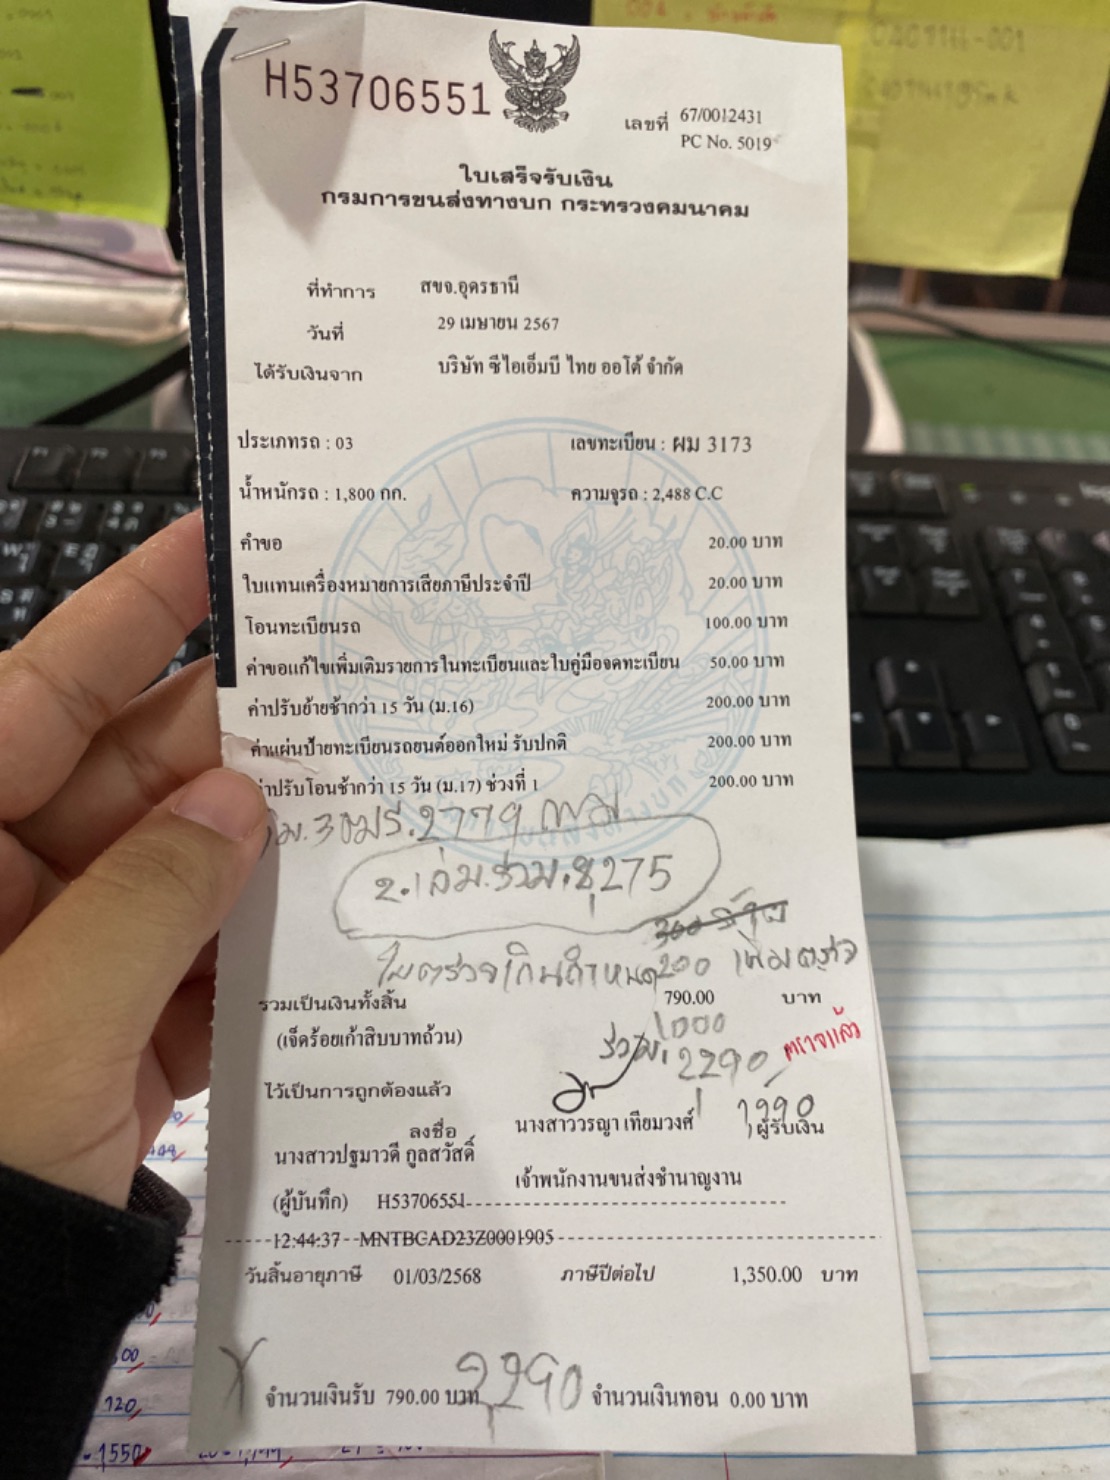 H53706551
เลขที่ 67/0012431
PC No. 5019
ใบเสร็จรับเงิน
กรมการขนส่งทางบก กระทรวงคมนาคม
ที่ทำการ สขจ.อุดรธานี
วันที่ 29 เมษายน 2567
ได้รับเงินจาก บริษัท ซีไอเอ็มบี ไทย ออโต้ จำกัด
ประเภทรถ : 03 เลขทะเบียน : ผม 3173
น้ำหนักรถ : 1,800 กก. ความจุรถ : 2,488 C.C
คำขอ 20.00 บาท
ใบแทนเครื่องหมายการเสียภาษีประจำปี 20.00 บาท
โอนทะเบียนรถ 100.00 บาท
ค่าขอแก้ไขเพิ่มเติมรายการในทะเบียนและใบคู่มือจดทะเบียน 50.00 บาท
ค่าปรับย้ายช้ากว่า 15 วัน (ม.16) 200.00 บาท
ค่าแผ่นป้ายทะเบียนรถยนต์ออกใหม่ รับปกติ 200.00 บาท
ค่าปรับโอนช้ากว่า 15 วัน (ม.17) ช่วงที่ 1 200.00 บาท
2,779
2.เล่ม.รวม.8,275
ใบตรวจเกินกำหนด 200
รวมเป็นเงินทั้งสิ้น 790.00 บาท
(เจ็ดร้อยเก้าสิบบาทถ้วน) 1000
รวม. 2,290 ตรวจแล้ว
ไว้เป็นการถูกต้องแล้ว
1,990
ลงชื่อ นางสาววรญา เทียมวงศ์ ผู้รับเงิน
นางสาวปฐมาวดี กูลสวัสดิ์
เจ้าพนักงานขนส่งชำนาญงาน
(ผู้บันทึก) H53706551
12:44:37 MNTBCAD23Z0001905
วันสิ้นอายุภาษี 01/03/2568 ภาษีปีต่อไป 1,350.00 บาท
2,290
จำนวนเงินรับ 790.00 บาท จำนวนเงินทอน 0.00 บาท
120
1550